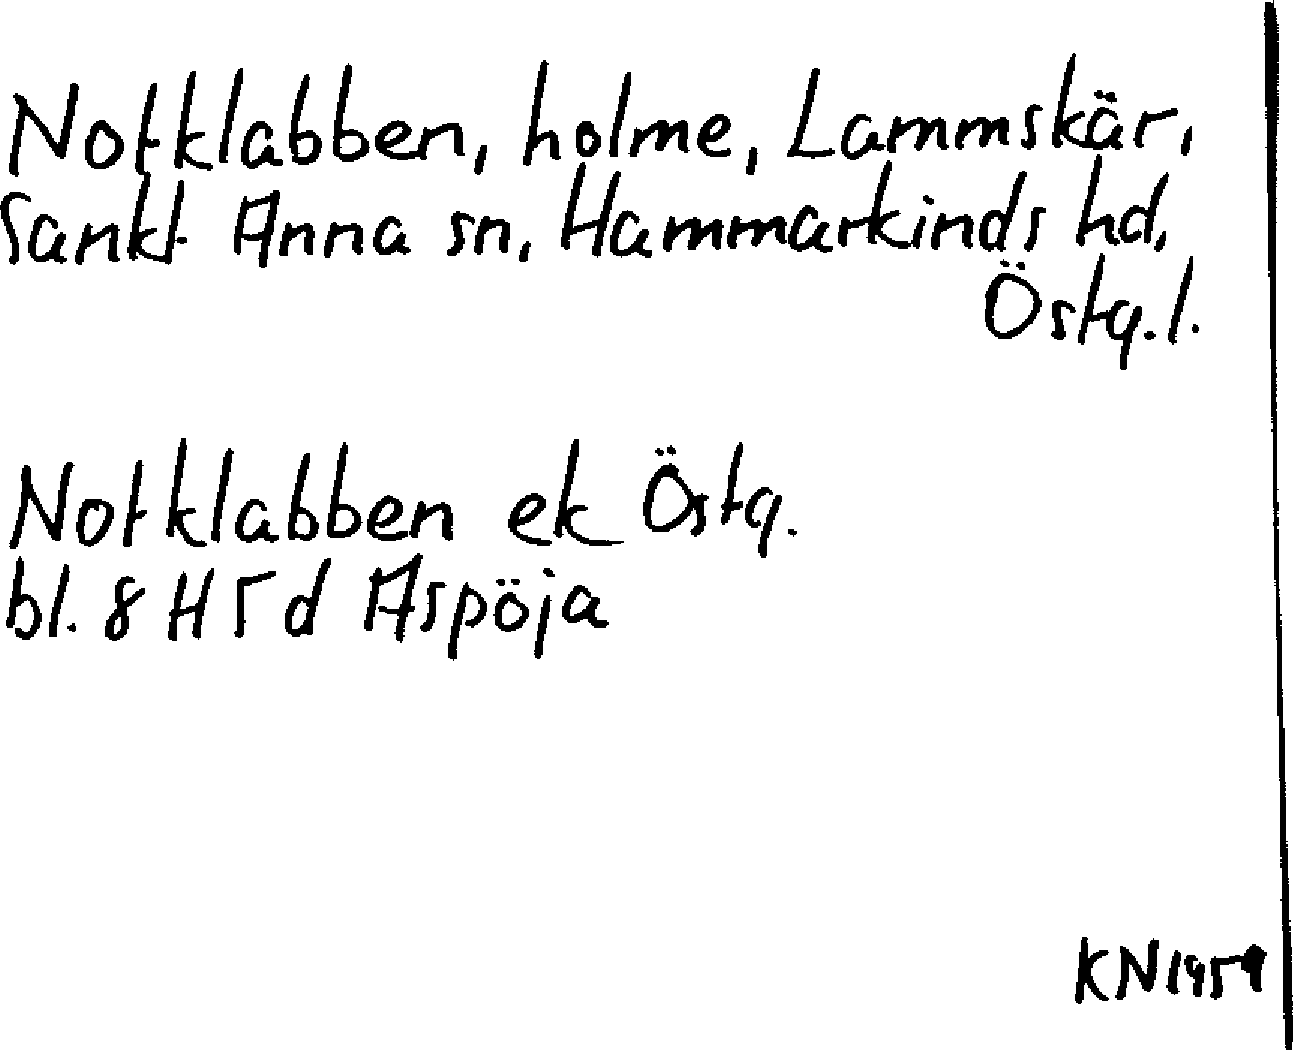 Notklabben, holme, Lammskär,
Sankt Anna sn, Hammarkinds hd,
Östg. l.
Notklabben ek Östg.
bl. 8 H 5 d Aspöja
KN 1959